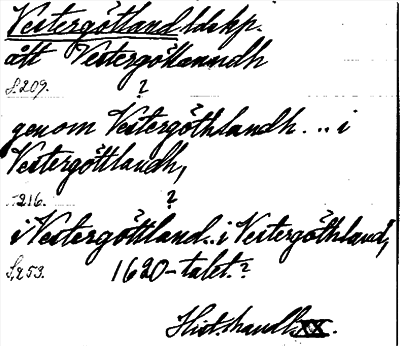 Vestergötland ldskp.
att Vestergötlanndh
S. 209. ?
genom Vestergöthlandh... i
Vestergöttlandh,
216. ?
i Vestergöttland.. i Vestergöthland,
S. 253. 1620-talet.?
Hist. handl. XX.